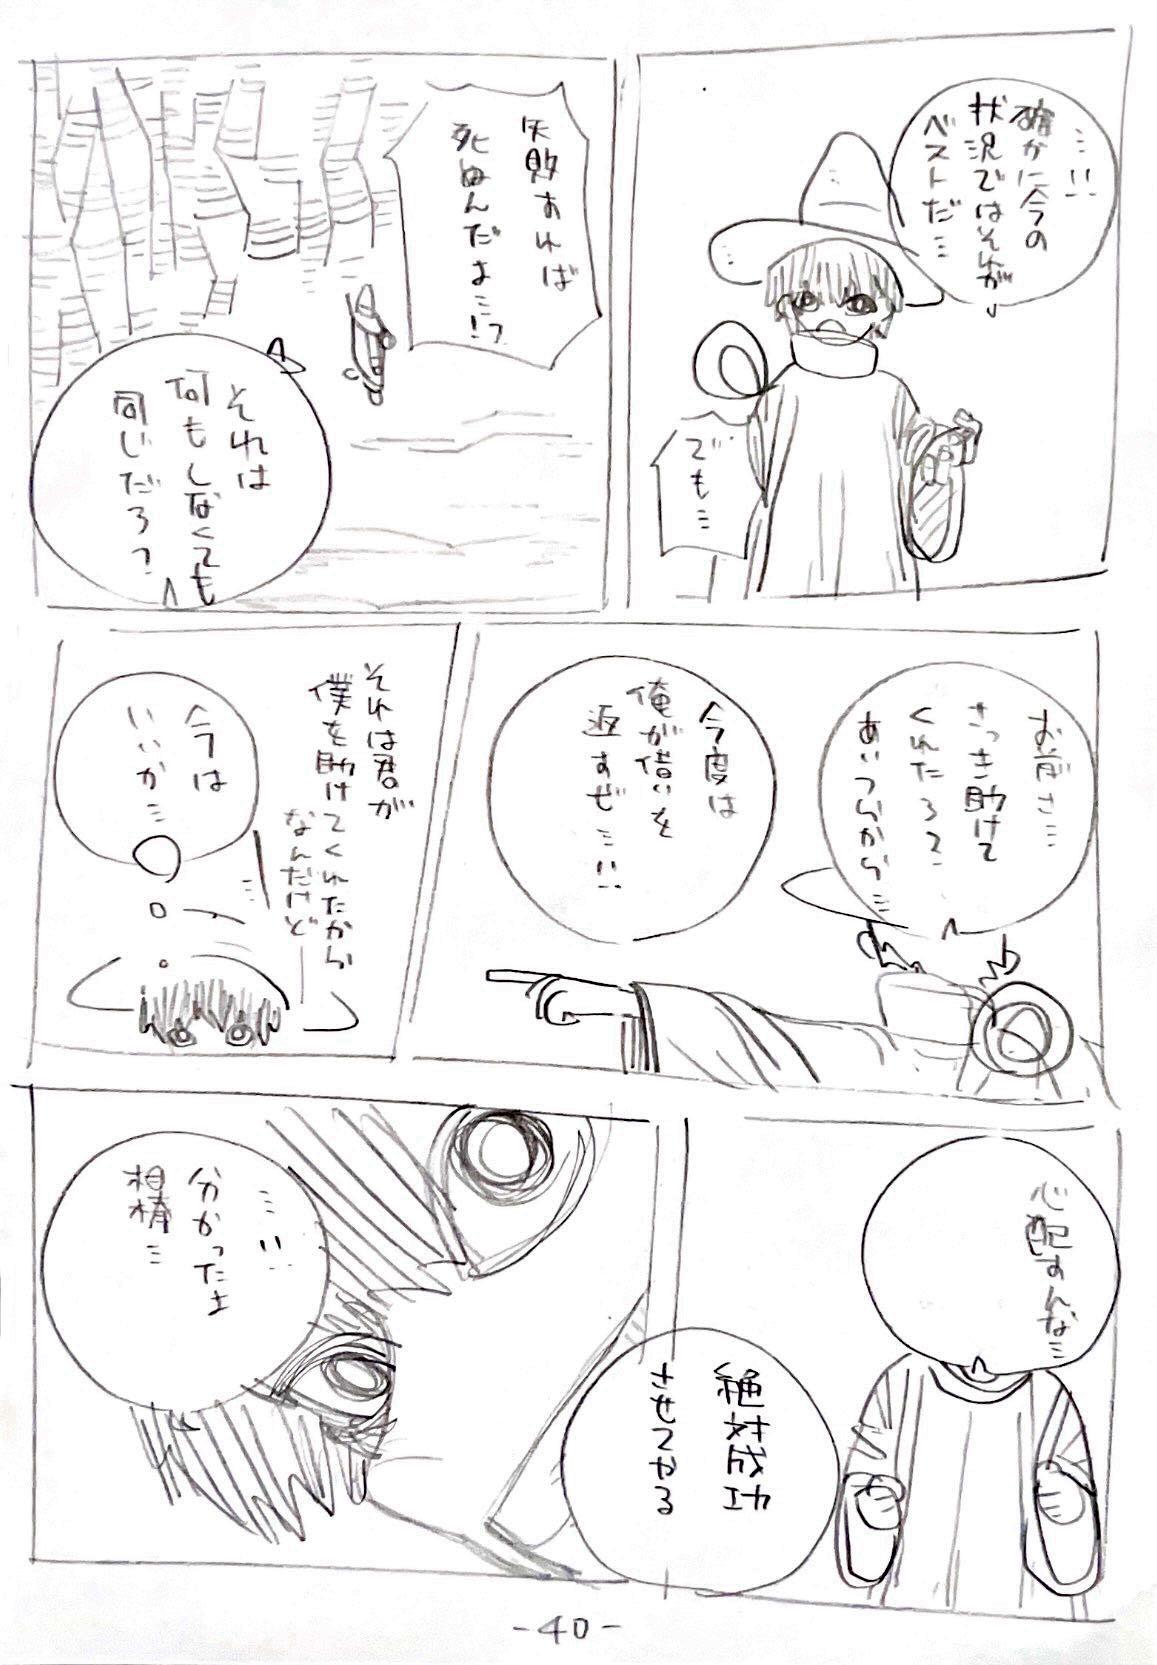 …!!
確かに今の
状況ではそれが
ベストだ…
でも…
失敗すれば
死ぬんだよ…!?
それは
何もしなくても
同じだろ?
お前さ…
さっき助けて
くれたろ?
あいつらから…
今度は
俺が借りを
返すぜ…!!
それは君が
僕を助けてくれたから
なんだけど
…
今は
いいか…
心配すんな…
絶対成功
させてやる
…!!
分かったよ
相棒…
-40-